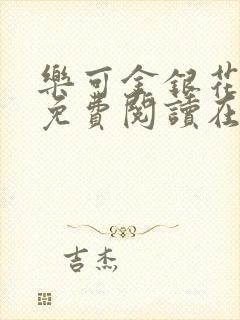 樂可金銀花
免費閱讀在
吉杰